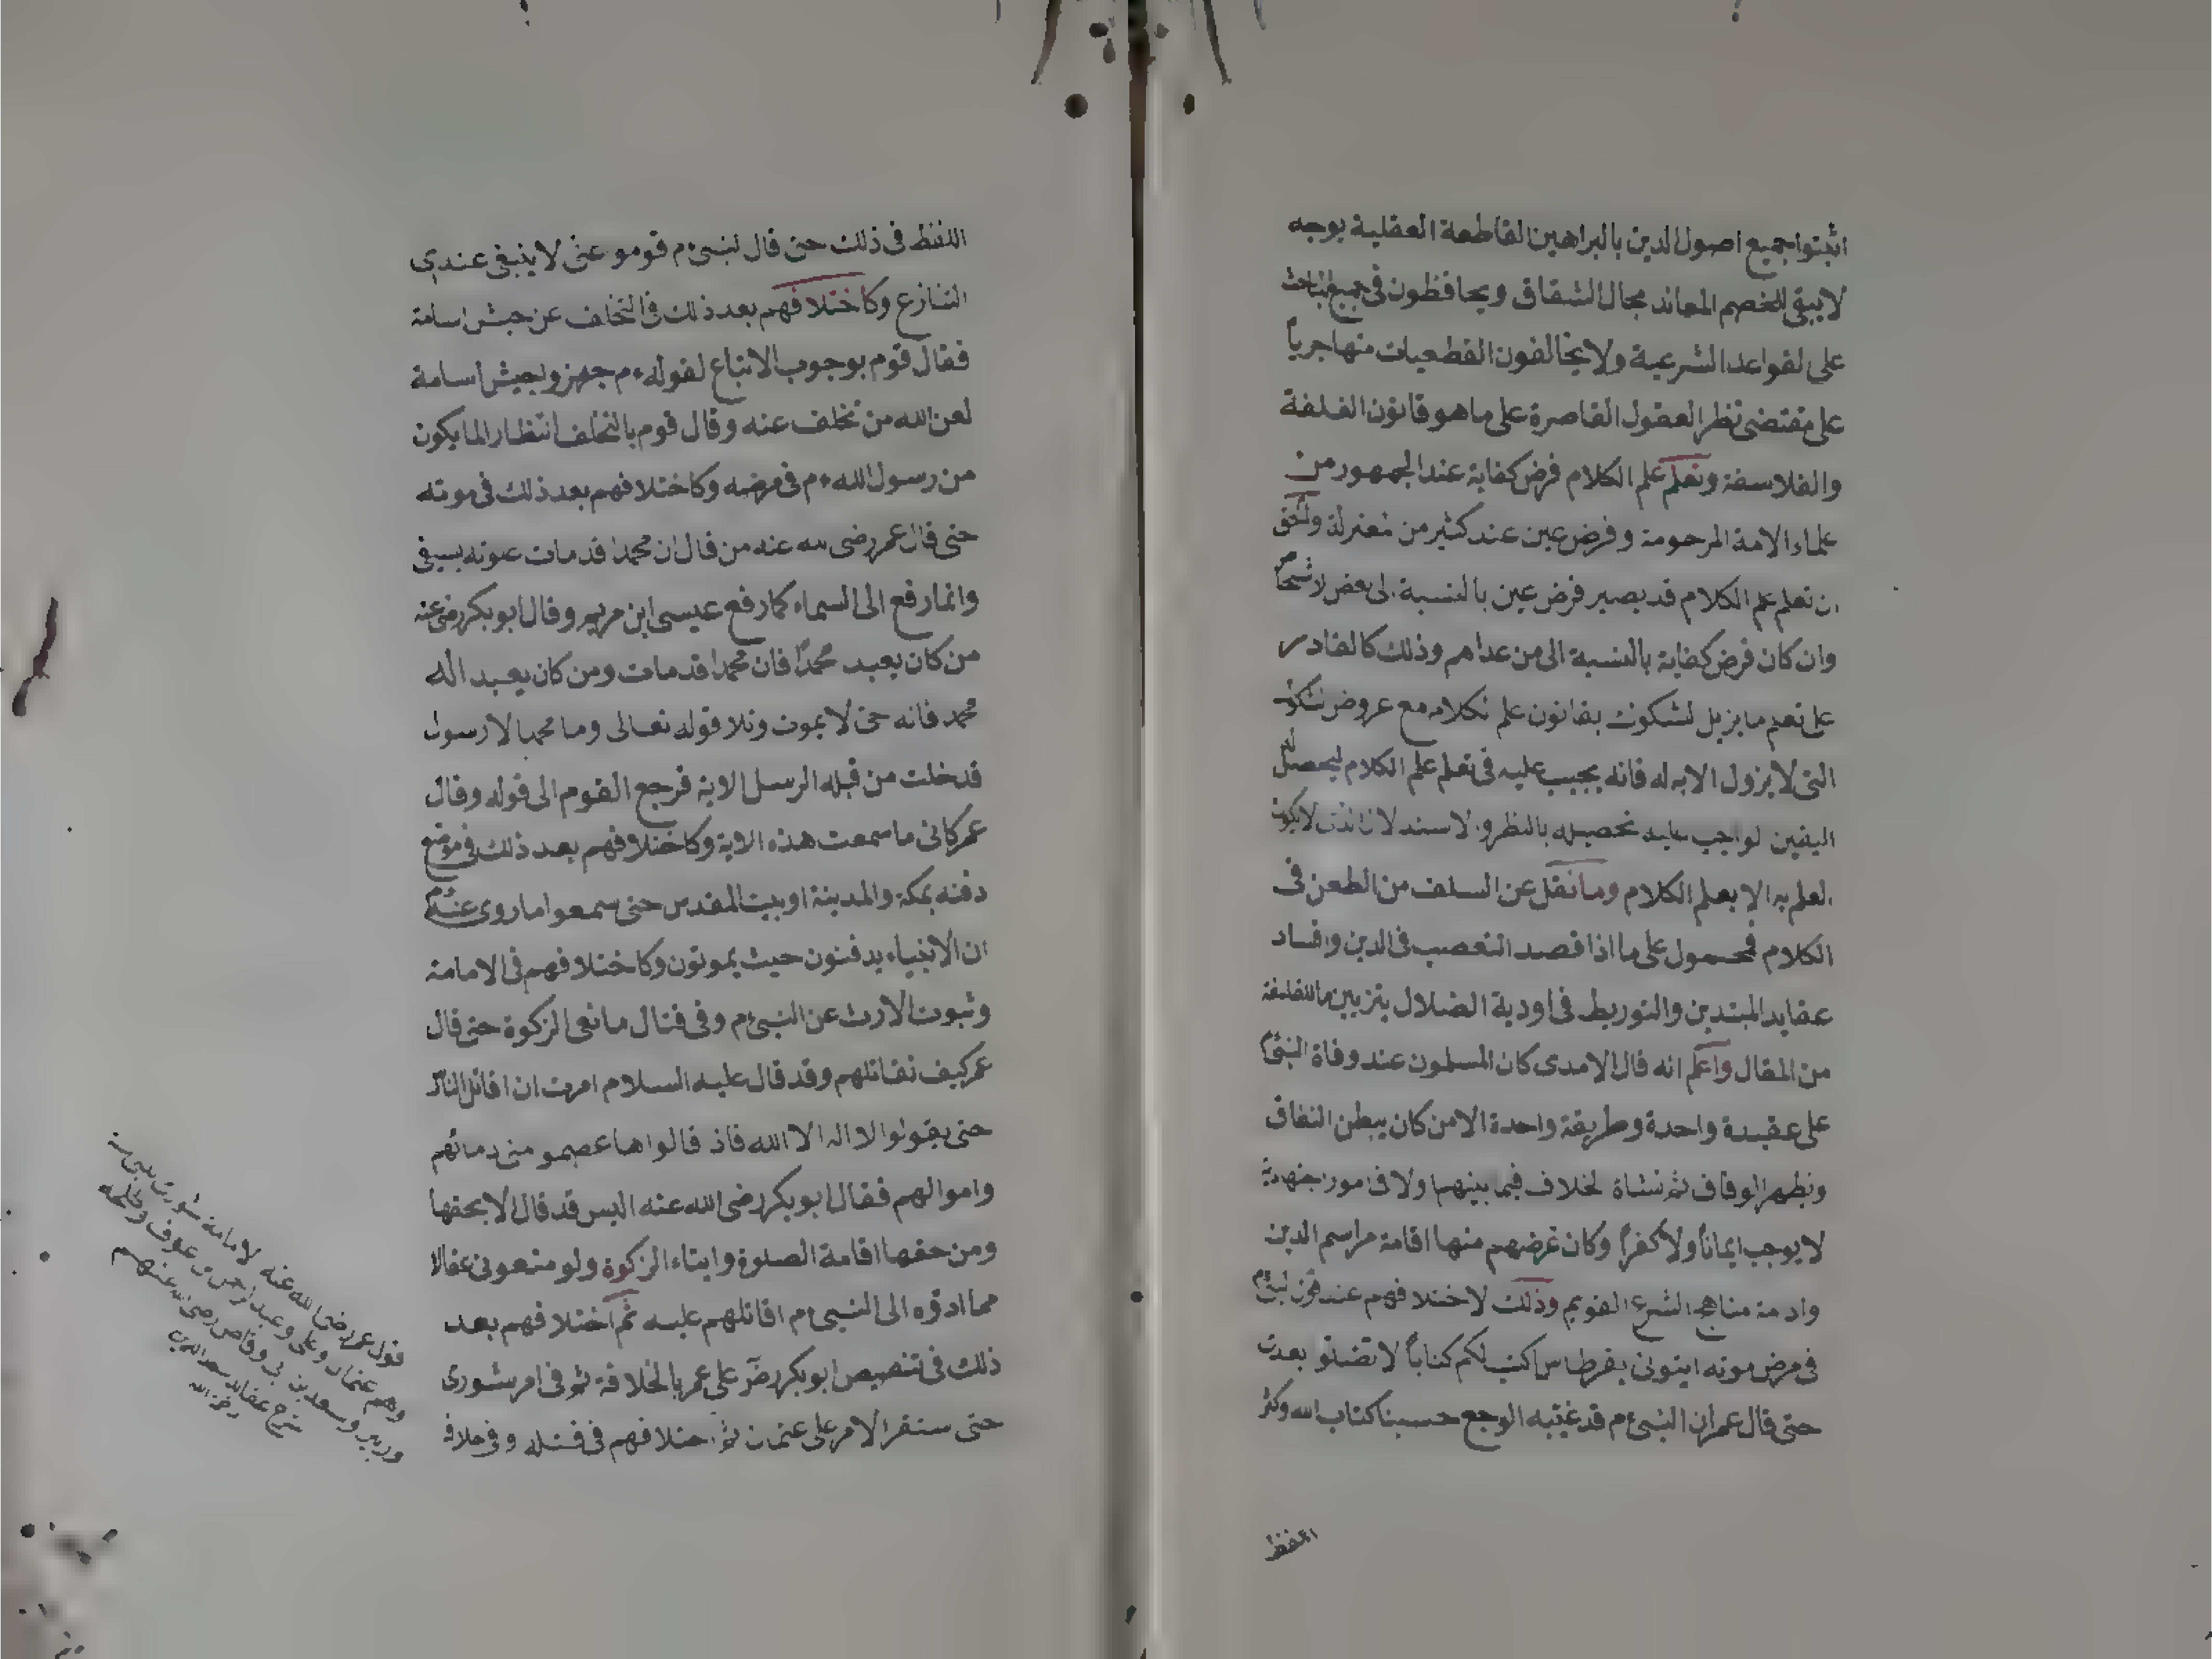 اثبتوا جميع اصول الدين بالبراهين القاطعة العقلية بوجه
لا يبقى للخصم المعاند مجال الشقاق ويحافظون فى جميع المباحث
على القواعد الشرعية ولا يخالفون القطعيات منها جرياً
على مقتضى نظر العقول القاصرة على ما هو قانون الفلفة
والفلاسفة وتعلم علم الكلام فرض كفاية عند الجمهور من
علماء الامة المرحومة وفرض عين عند كثير من معتزلة والحق
ان تعلم علم الكلام قد يصير فرض عين بالنسبة الى بعض
وان كان فرض كفاية بالنسبة الى من عداهم وذلك كالقادر
على تعلم ما يزيل الشكوك بقانون علم الكلام مع عروض شكوك
التى لا يزول الا به له فانه يجب عليه فى تعلم علم الكلام ليحصل له
اليقين الواجب عليه تحصيله بالنظر والاسند لا يكون
العلم به الا بعلم الكلام وما نقل عن السلف من الطعن فى
الكلام فمحمول على ما اذا قصد التعصب فى الدين وافساد
عقايد المبتدين والتوريط فى اودية الضلال بتزيين ما للفلسفة
من المقال واعلم انه قال الامدى كان المسلمون عند وفاة النبى ءم
على عقيدة واحدة وطريقة واحدة الا من كان يبطن النفاق
ويظهر الوفاق ثم نشاة الخلاف فيما بينهم اولا فى امور اجتهادية
لا يوجب ايماناً ولا كفراً وكان غرضهم منها اقامة مراسم الدين
وادامة مناهج الشرع القويم وذلك لاختلافهم عند قول النبى ءم
فى مرض موته ايتونى بقرطاس اكتب لكم كتاباً لا تضلو بعدى
حتى قال عمر ان النبى ءم قد غلبه الوجع حسبنا كتاب الله وكثر
اللفظ
اللفظ فى ذلك حتى قال النبى ءم قومو عنى لا ينبغى عندى
التنازع وكاختلافهم بعد ذلك فى التخلف عن جيش اسامة
فقال قوم بوجوب الاتباع لقوله ءم جهزو جيش اسامة
لعن الله من تخلف عنه وقال قوم بالتخلف انتظارا لما يكون
من رسول الله ءم فى مرضه وكاختلافهم بعد ذلك فى موته
حتى قال عمر رضى الله عنه من قال ان محمدا قد مات علوته بسيفى
وانما رفع الى السماء كما رفع عيسى ابن مريم وقال ابو بكر رضى عنه
من كان يعبد محمداً فان محمدا قد مات ومن كان يعبد اله
محمد فانه حى لا يموت وتلا قوله تعالى وما محمد الا رسول
قد خلت من قبله الرسل الاية فرجع القوم الى قوله وقال
عمر كانى ما سمعت هذه الاية وكاختلافهم بعد ذلك فى موضع
دفنه بمكة والمدينة او بيت المقدس حتى سمعوا ما روى عنه ءم
ان الانبياء يدفنون حيث يموتون وكاختلافهم فى الامامة
وثبوت الارث عن النبى ءم وفى قتال مانعى الزكوة حتى قال
عمر كيف نقاتلهم وقد قال عليه السلام امرت ان اقاتل الناس
حتى يقولوا لا اله الا الله فاذ قالوا ها عصمو منى دمائهم
واموالهم فقال ابو بكر رضى الله عنه اليس قد قال الا بحقها
ومن حقها اقامة الصلوة وايتاء الزكوة ولو منعونى عقالا
مما ادوه الى النبى ءم اقاتلهم عليه ثم اختلافهم بعد
ذلك فى تنصيص ابو بكر رض على عمر بالخلافة ثم فى امر شورى
حتى ستقر الامر على عثمان ثم اختلافهم فى قتله وفى خلافة
قول عمر رضى الله عنه الامامة شورى بين ستة
وهم عثمان وعلى وعبد الرحمن بن عوف وطلحة
وزبير وسعد بن ابى وقاص رضى الله عنهم
شرح عقايد سعد الدين
رحمه الله